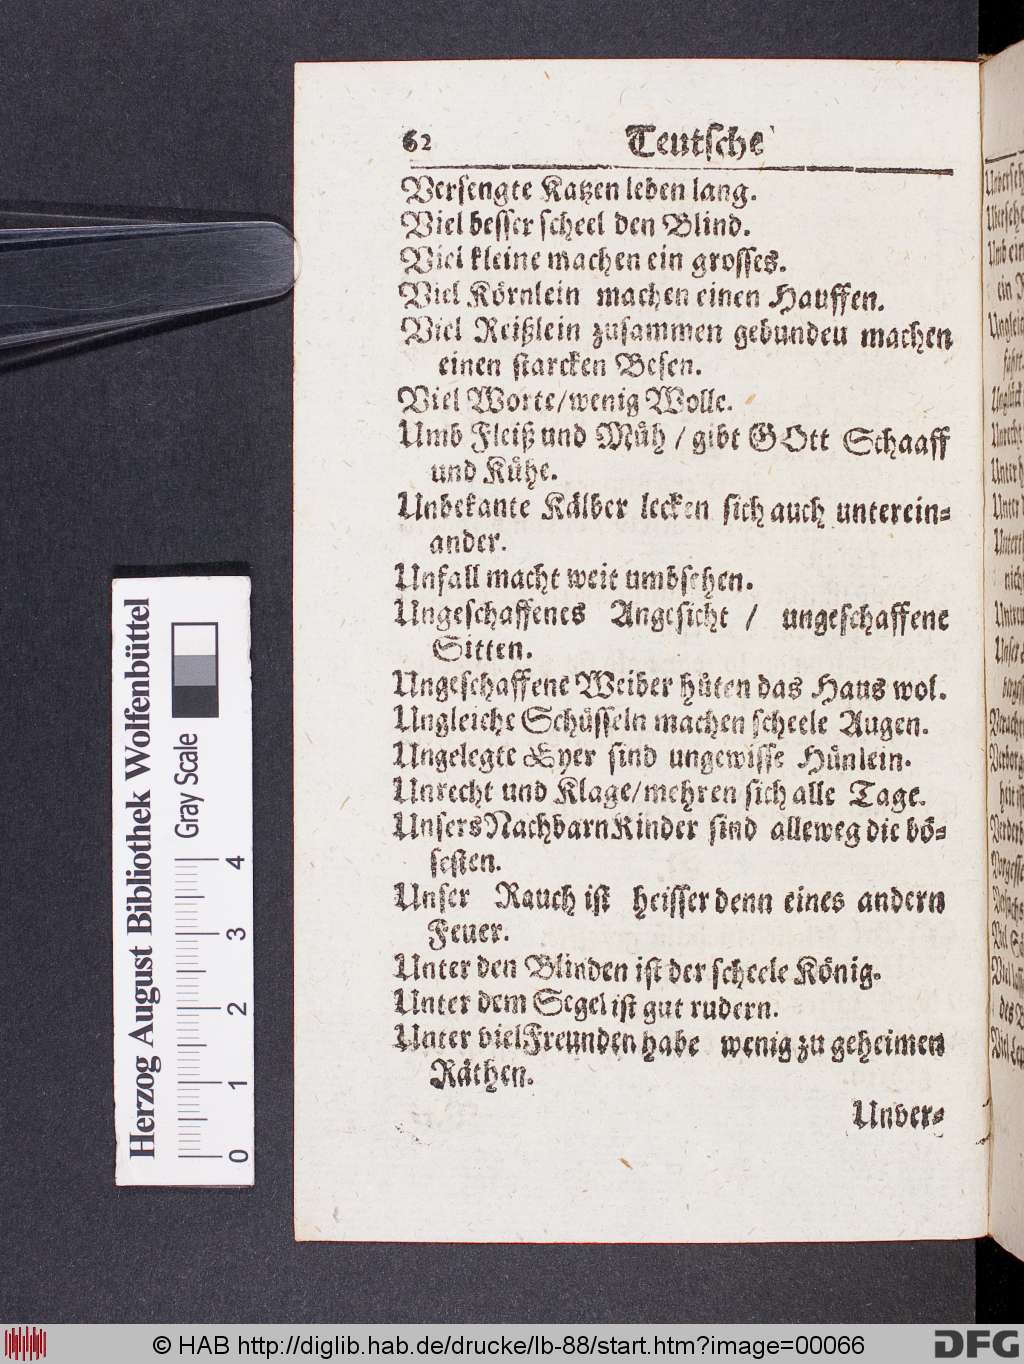 62 Teutsche
Versengte Katzen leben lang.
Viel besser scheel den Blind.
Viel kleine machen ein grosses.
Viel Körnlein machen einen Hauffen.
Viel Reißlein zusammen gebundeu machen
einen starcken Besen.
Viel Worte/wenig Wolle.
Umb Fleiß und Müh / gibt GOtt Schaaff
und Kühe.
Unbekante Kälber lecken sich auch unterein-
ander.
Unfall macht weit umbsehen.
Ungeschaffenes Angesicht / ungeschaffene
Sitten.
Ungeschaffene Weiber hüten das Haus wol.
Ungleiche Schüsseln machen scheele Augen.
Ungelegte Eyer sind ungewisse Hünlein.
Unrecht und Klage/mehren sich alle Tage.
Unsers Nachbarn Kinder sind alleweg die bö-
sesten.
Unser Rauch ist heisser denn eines andern
Feuer.
Unter den Blinden ist der scheele König.
Unter dem Segel ist gut rudern.
Unter viel Freunden habe wenig zu geheimen
Räthen.
Unver-
Herzog August Bibliothek Wolfenbüttel
Gray Scale
0 1 2 3 4
© HAB http://diglib.hab.de/drucke/lb-88/start.htm?image=00066
DFG